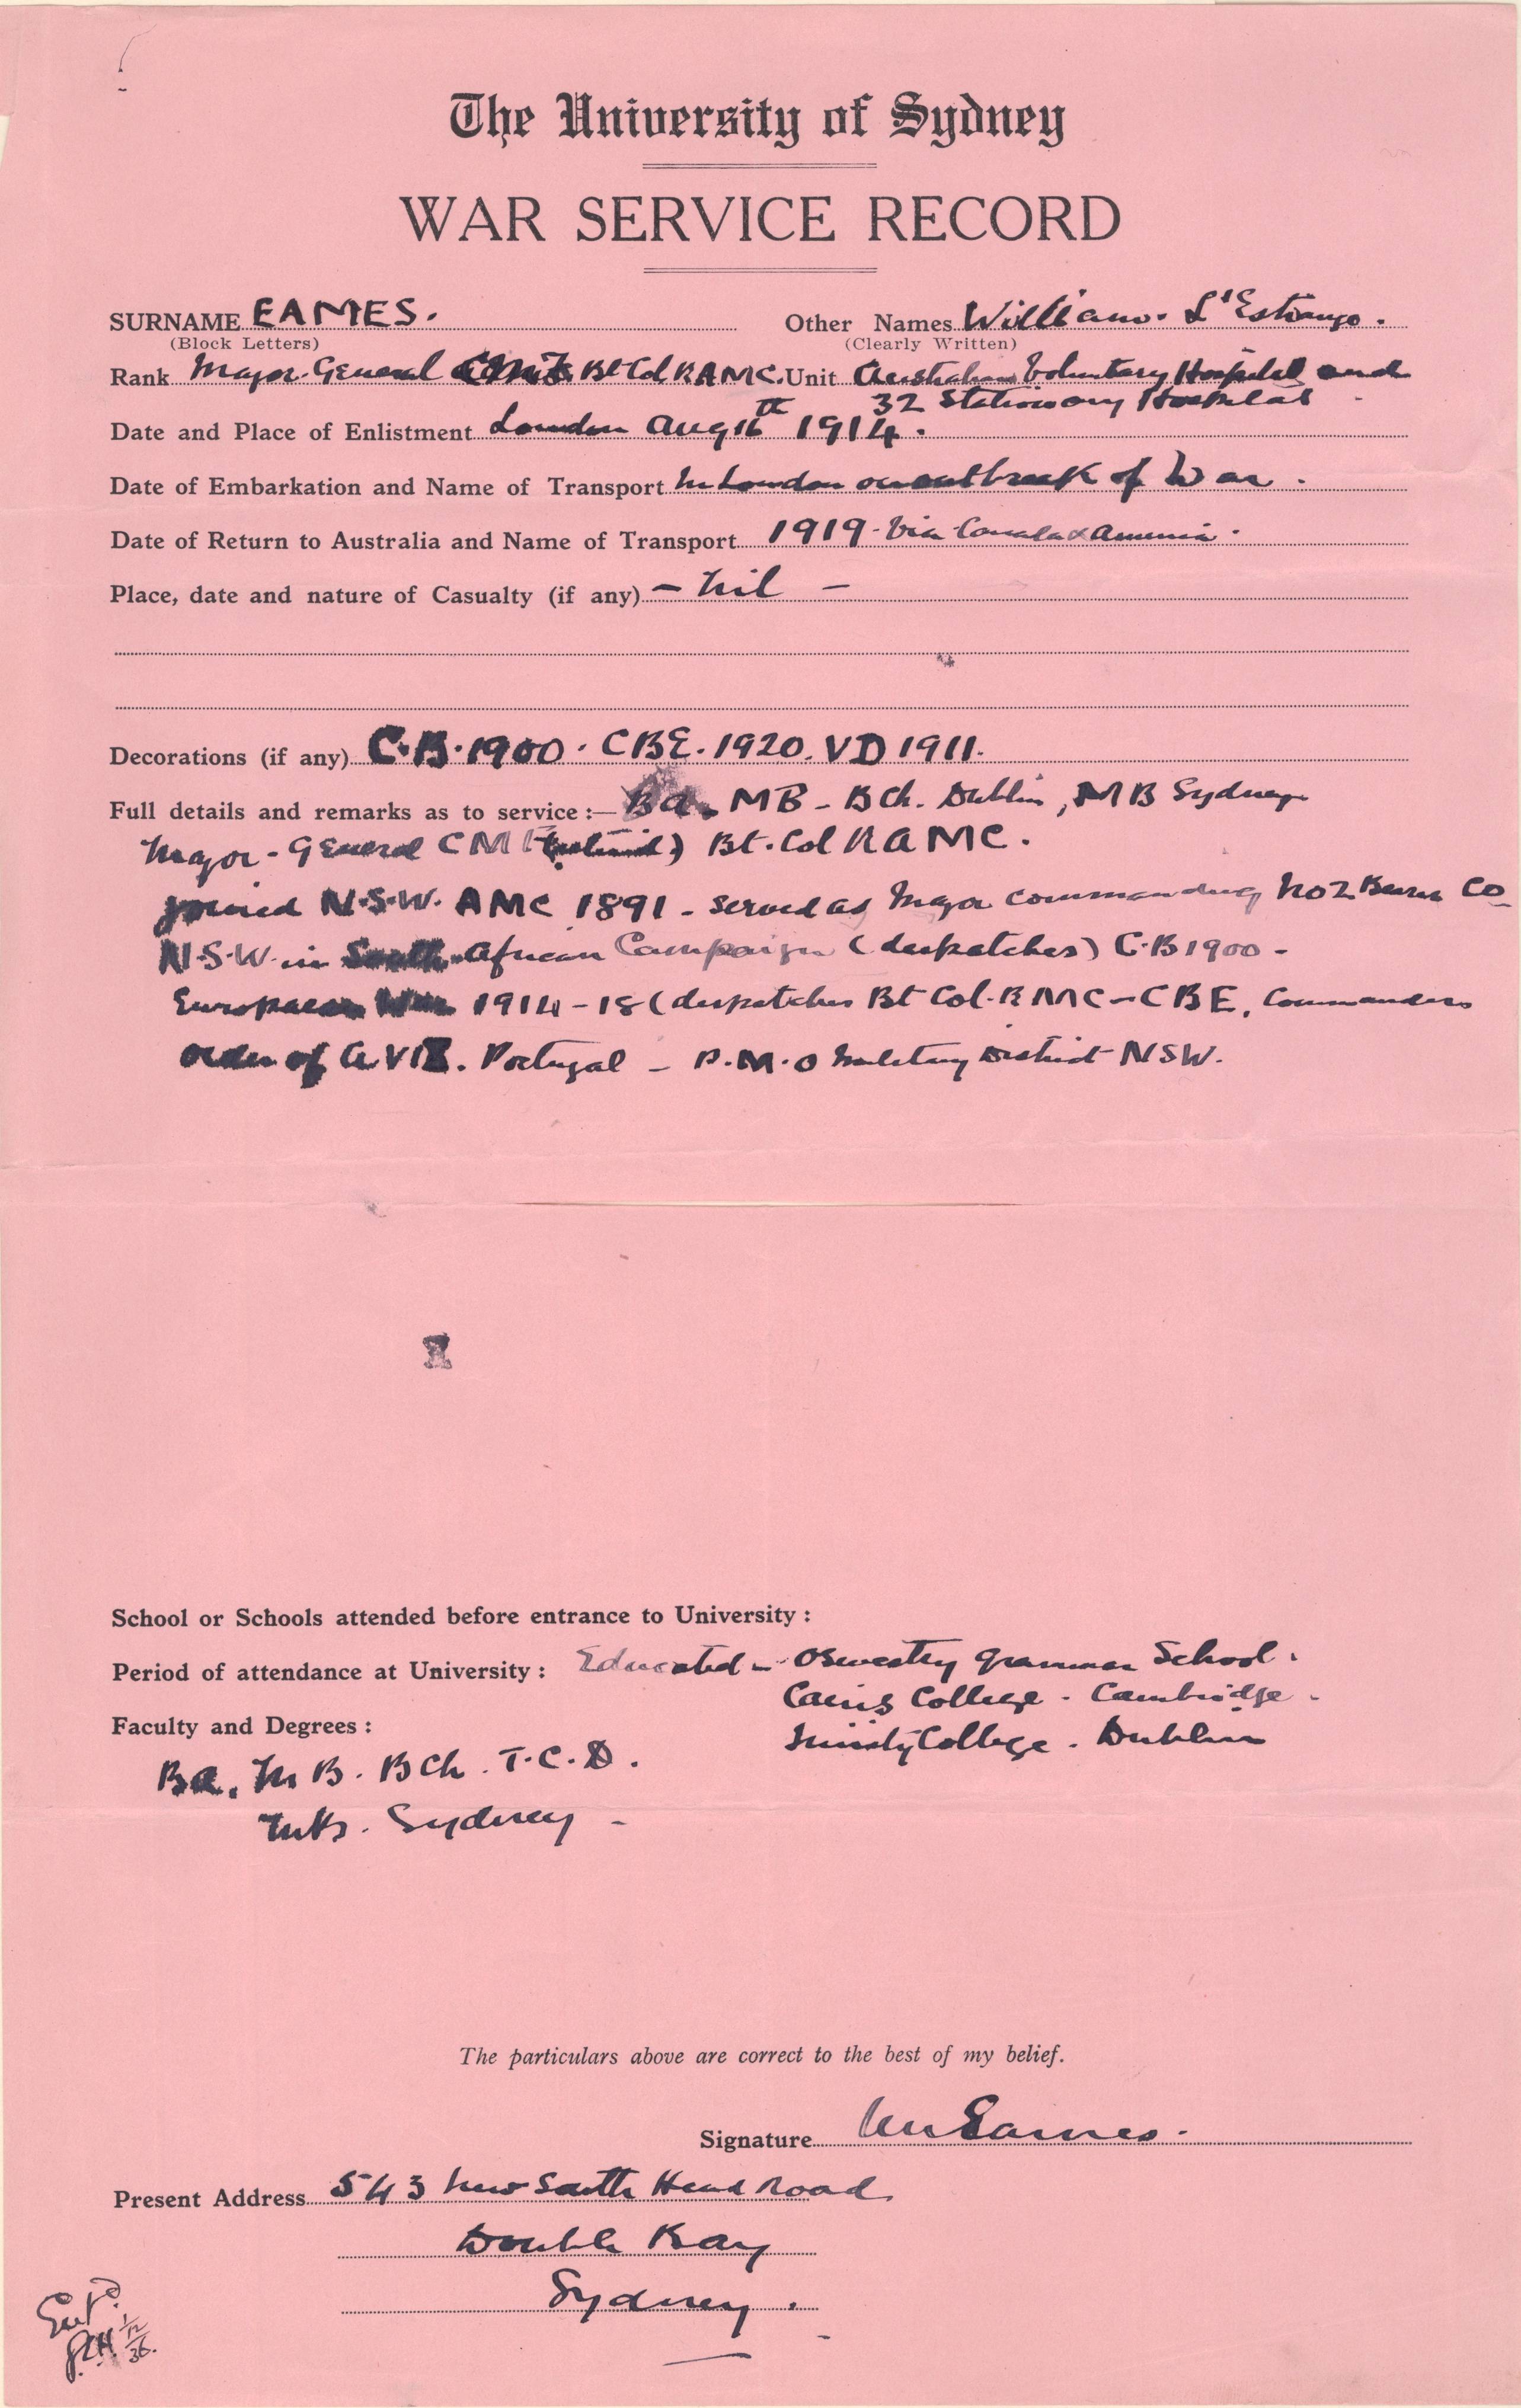 The University of Sydney
WAR SERVICE RECORD
SURNAME EAMES. Other Names William. L'Estrange.
(Block Letters) (Clearly Written)
Rank Major General CMF Bt Col RAMC. Unit Australian Voluntary Hospital and
32 Stationary Hospital
Date and Place of Enlistment London Aug 16th 1914.
Date of Embarkation and Name of Transport In London on outbreak of War.
Date of Return to Australia and Name of Transport 1919 - Via Canada & America.
Place, date and nature of Casualty (if any) - nil -
Decorations (if any) C.B. 1900. CBE. 1920. VD 1911.
Full details and remarks as to service:— Ba. MB - B Ch. Dublin, MB Sydney
Major-General CMF (retired) Bt. Col RAMC.
joined N.S.W. AMC 1891 - served as Major commanding No 2 Bearer Co
N.S.W. in South African Campaign (despatches) C.B 1900 -
European War 1914-18 (despatches Bt Col. RAMC - CBE. Commanders
order of Portugal - P.M.O Military District NSW.
School or Schools attended before entrance to University:
Period of attendance at University: Educated - Oswestry Grammar School.
Caius College - Cambridge.
Faculty and Degrees:
Trinity College. Dublin
Ba. M B. B Ch. T.C.D.
MB. Sydney -
The particulars above are correct to the best of my belief.
Signature Wm Eames.
Present Address 543 New South Head Road
Double Bay
Sydney.
1/12/36.